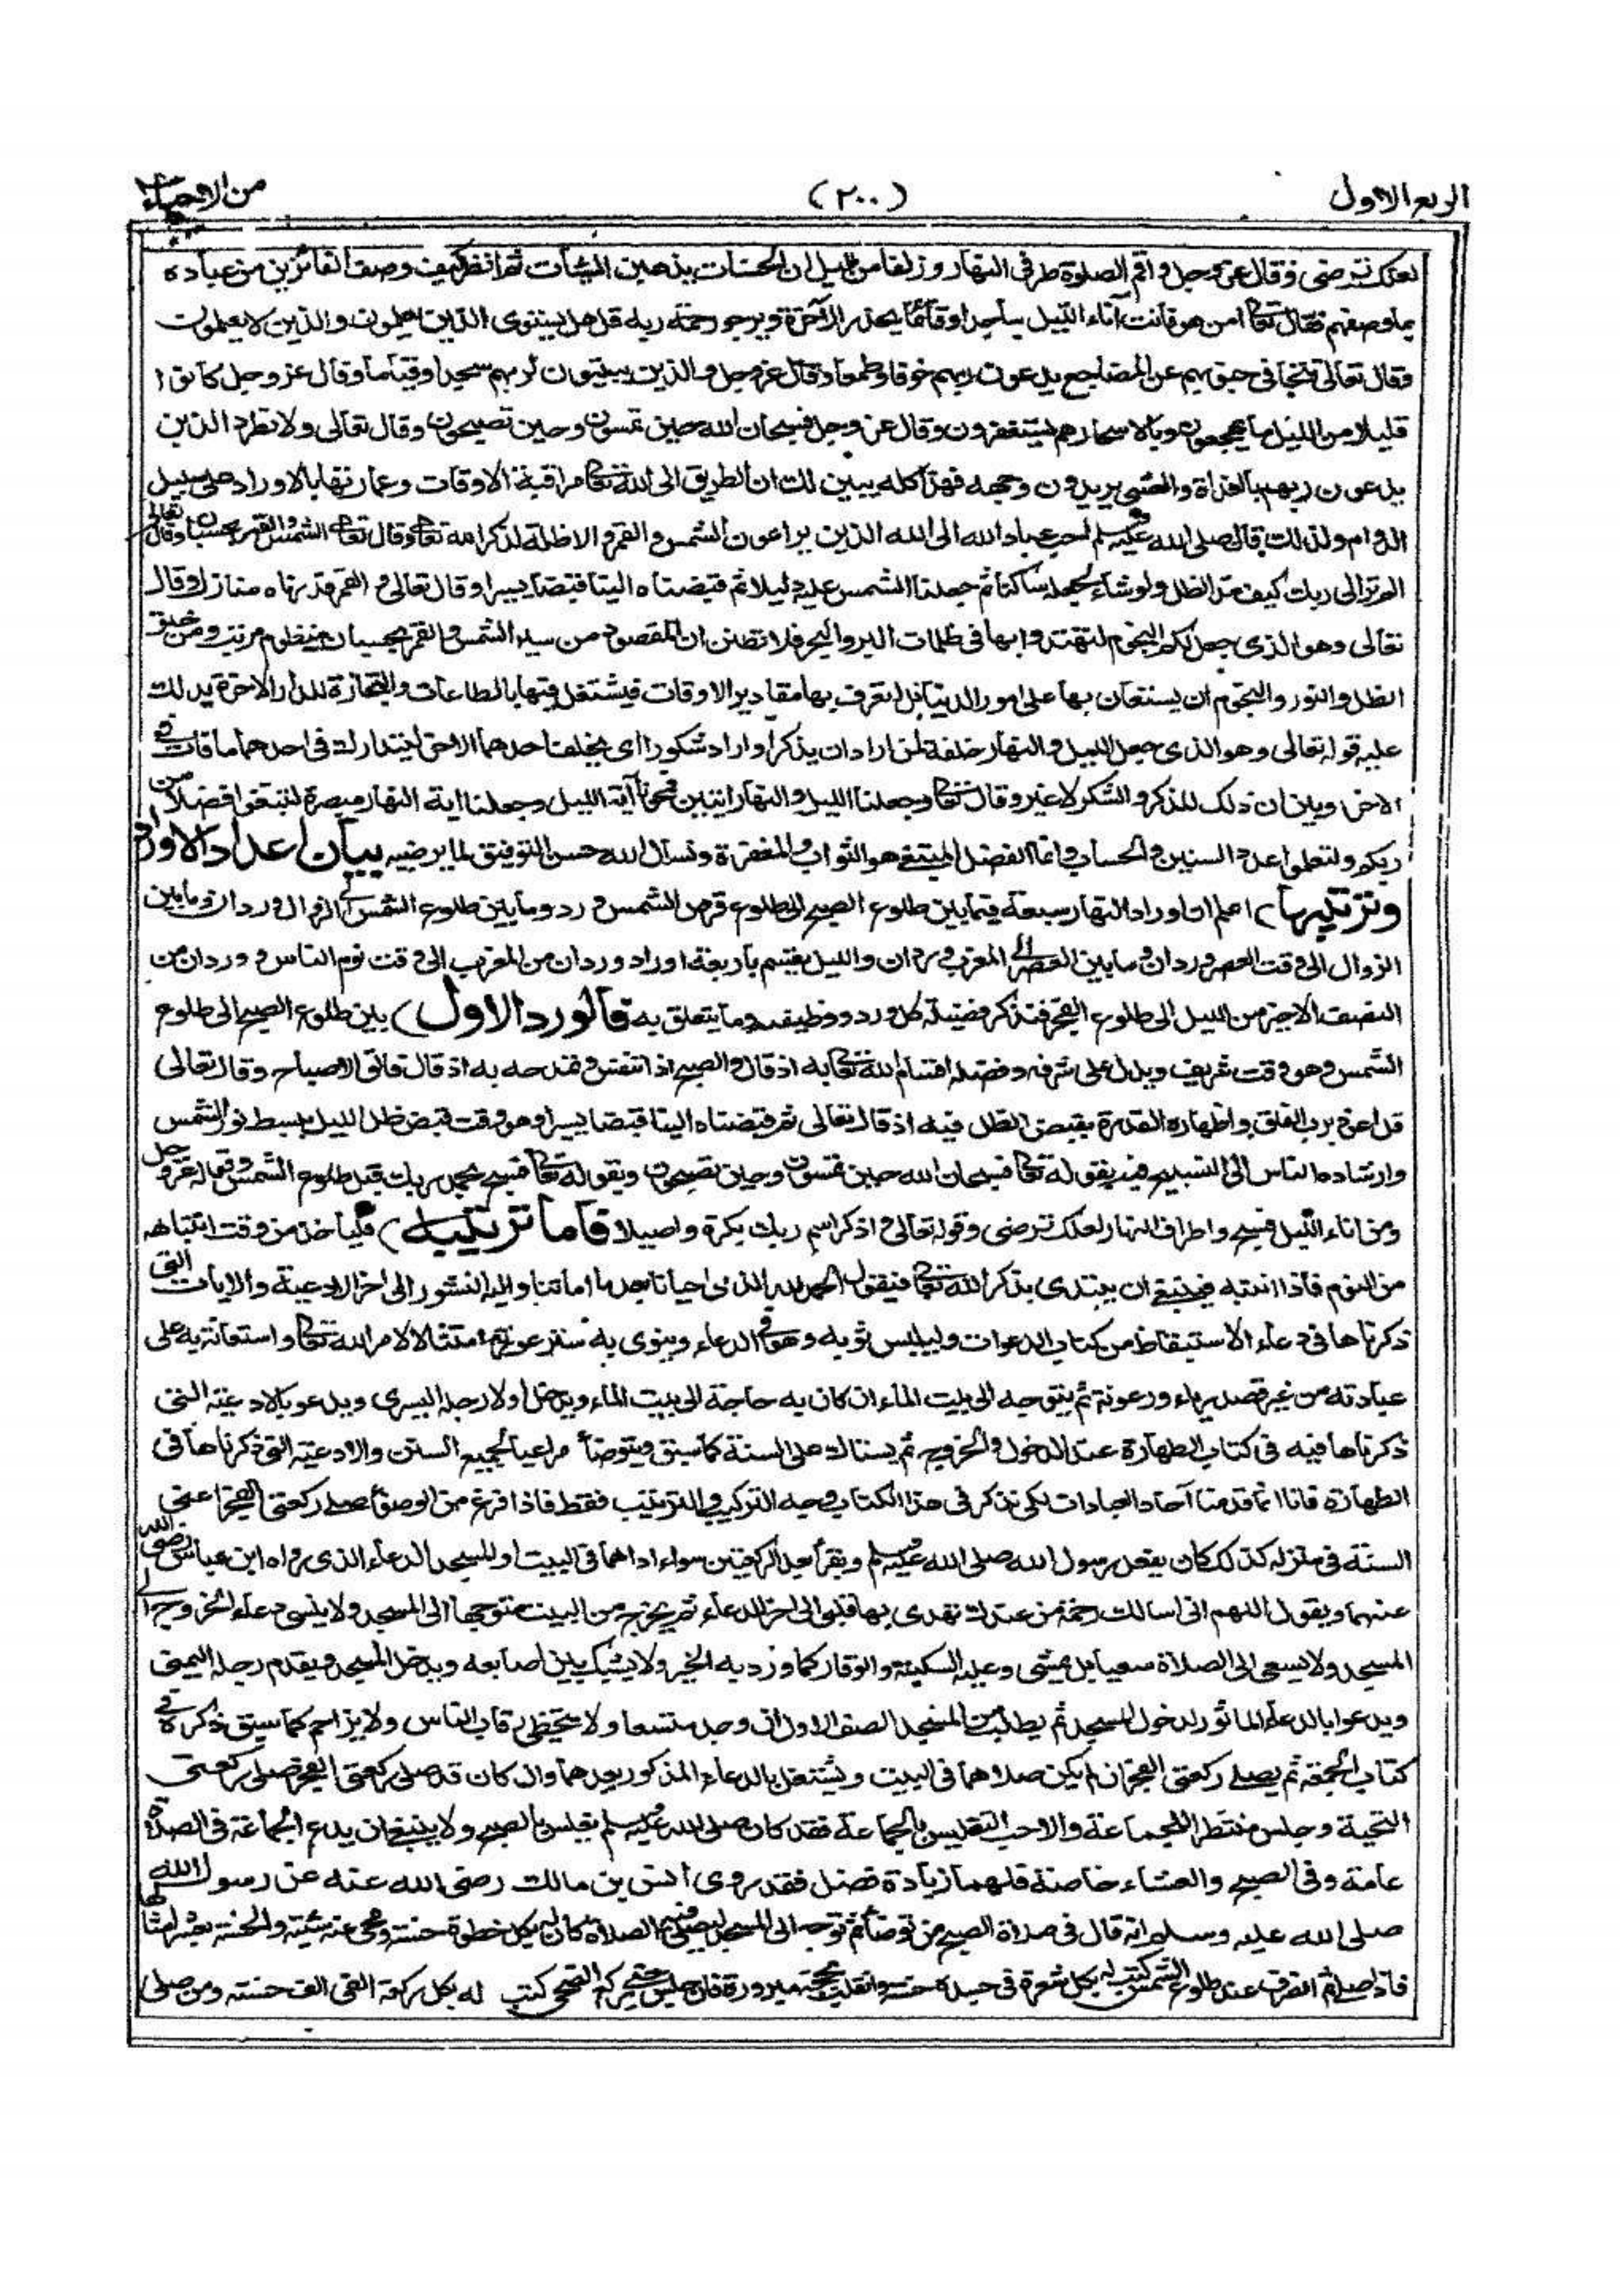 الربع الاول (٢٠٠) من الاحياء
لعلك ترضى وقال عز وجل واقم الصلوة طرفى النهار وزلفا من الليل ان الحسنات يذهبن السيئات ثم انظر كيف وصف الفائزين من عباده
بما وصفهم فقال تعا امن هو قانت آناء الليل ساجدا وقائما يحذر الآخرة ويرجو رحمة ربه قل هل يستوى الذين يعلمون والذين لا يعلمون
وقال تعالى تتجافى جنوبهم عن المضاجع يدعون ربهم خوفا وطمعا وقال عز وجل والذين يبيتون لربهم سجدا وقياما وقال عز وجل كانوا
قليلا من الليل ما يهجعون وبالاسحار هم يستغفرون وقال عز وجل فسبحان الله حين تمسون وحين تصبحون وقال تعالى ولا تطرد الذين
يدعون ربهم بالغداة والعشى يريدون وجهه فهذا كله يبين لك ان الطريق الى الله تعا مراقبة الاوقات وعمارتها بالاوراد على سبيل
الدوام ولذلك قال صلى الله عليه وسلم احب عباد الله الى الله الذين يراعون الشمس والقمر والاظلة لذكر الله تعا وقال تعا الشمس والقمر بحسبان وقال تعالى
الم تر الى ربك كيف مد الظل ولو شاء لجعله ساكنا ثم جعلنا الشمس عليه دليلا ثم قبضناه الينا قبضا يسيرا وقال تعالى والقمر قدرناه منازل وقال
تعالى وهو الذى جعل لكم النجوم لتهتدوا بها فى ظلمات البر والبحر فلا تظنن ان المقصود من سير الشمس والقمر بحسبان منظوم مرتب ومن خلق
الظل والنور والنجوم ان يستعان بها على امور الدنيا بل لتعرف بها مقادير الاوقات فيشتغل فيها بالطاعات والتجارة للدار الآخرة يدلك
عليه قوله تعالى وهو الذى جعل الليل والنهار خلفة لمن اراد ان يذكر او اراد شكورا اى يخلف احدهما الاخر ليتدارك فى احدهما ما فات فى
الاخر وبين ان ذلك للذكر والشكر لا غير وقال تعا وجعلنا الليل والنهار ايتين فمحونا آية الليل وجعلنا اية النهار مبصرة لتبتغوا فضلا من
ربكم ولتعلموا عدد السنين والحساب وانما الفضل المبتغى هو الثواب والمغفرة ونسال الله حسن التوفيق لما يرضيه بيان اعداد الاوراد
وترتيبها) اعلم ان اوراد النهار سبعة فيما بين طلوع الصبح الى طلوع قرص الشمس ورد وما بين طلوع الشمس الى الزوال وردان وما بين
الزوال الى وقت العصر وردان وما بين العصر الى المغرب وردان والليل يقسم باربعة اوراد وردان من المغرب الى وقت نوم الناس ووردان من
النصف الاخير من الليل الى طلوع الفجر فنذكر فضيلة كل ورد ووظيفته وما يتعلق به فالورد الاول) بين طلوع الصبح الى طلوع
الشمس وهو وقت شريف ويدل على شرفه وفضله اقسام الله تعا به اذ قال والصبح اذا تنفس وتمدحه به اذ قال فالق الاصباح وقال تعالى
قل اعوذ برب الفلق واظهاره القدرة بقبض الظل فيه اذ قال تعالى ثم قبضناه الينا قبضا يسيرا وهو وقت قبض ظل الليل ببسط نور الشمس
وارشاده الناس الى التسبيح فيه بقوله تعا فسبحان الله حين تمسون وحين تصبحون وبقوله تعا فسبح بحمد ربك قبل طلوع الشمس وقوله عز وجل
ومن اناء الليل فسبح واطراف النهار لعلك ترضى وقوله تعالى واذكر اسم ربك بكرة واصيلا فاما ترتيبه) فلياخذ من وقت انتباهه
من النوم فاذا انتبه فينبغى ان يبتدى بذكر الله تعا فيقول الحمد لله الذى احيانا بعد ما اماتنا واليه النشور الى اخر الادعية والايات التى
ذكرناها فى دعاء الاستيقاظ من كتاب الدعوات وليلبس ثوبه وهو فى الدعاء وينوى به ستر عورته امتثالا لامر الله تعا واستعانة به على
عبادته من غير قصد رياء ورعونة ثم يتوجه الى بيت الماء ان كان به حاجة الى بيت الماء ويدخل اولا رجله اليسرى ويدعو بالادعية التى
ذكرناها فيه فى كتاب الطهارة عند الدخول والخروج ثم يستاك على السنة كما سبق ويتوضأ مراعيا لجميع السنن والادعية التى ذكرناها فى
الطهارة فانا انما قدمنا آحاد العبادات لكى نذكر فى هذا الكتاب وجه التركيب والترتيب فقط فاذا فرغ من الوضوء صلى ركعتى الفجر اعنى
السنة فى منزله كذلك كان يفعل رسول الله صلى الله عليه وسلم ويقرأ بعد الركعتين سواء اداهما فى البيت او المسجد الدعاء الذى رواه ابن عباس رضى الله
عنهما ويقول اللهم انى اسالك رحمة من عندك تهدى بها قلبى الى اخر الدعاء ثم يخرج من البيت متوجها الى المسجد ولا ينسى دعاء الخروج الى
المسجد ولا يسعى الى الصلاة سعيا بل يمشى وعليه السكينة والوقار كما ورد به الخبر ولا يشبك بين اصابعه ويدخل المسجد ويقدم رجله اليمنى
ويدعو بالدعاء الماثور لدخول المسجد ثم يطلب من المسجد الصف الاول ان وجد متسعا ولا يتخطى رقاب الناس ولا يزاحم كما سبق ذكره فى
كتاب الجمعة ثم يصلى ركعتى الفجر ان لم يكن صلاهما فى البيت ويشتغل بالدعاء المذكور بعدهما وان كان قد صلى ركعتى الفجر صلى ركعتى
التحية وجلس منتظرا للجماعة والاحب التغليس بالجماعة فقد كان صلى الله عليه وسلم يغلس بالصبح ولا ينبغى ان يدع الجماعة فى الصلاة
عامة وفى الصبح والعشاء خاصة فلهما زيادة فضل فقد روى انس بن مالك رضى الله عنه عن رسول الله
صلى الله عليه وسلم انه قال فى صلاة الصبح من توضأ ثم توجه الى المسجد ليصلى فيه الصلاة كان له بكل خطوة حسنة ومحى عنه سيئة والحسنة بعشر امثالها
فاذا صلى ثم انصرف عند طلوع الشمس كتب له بكل شعرة فى جسده حسنة وانقلب بحجة مبرورة فان جلس حتى يركع الضحى كتب له بكل ركعة الفى الف حسنة ومن صلى